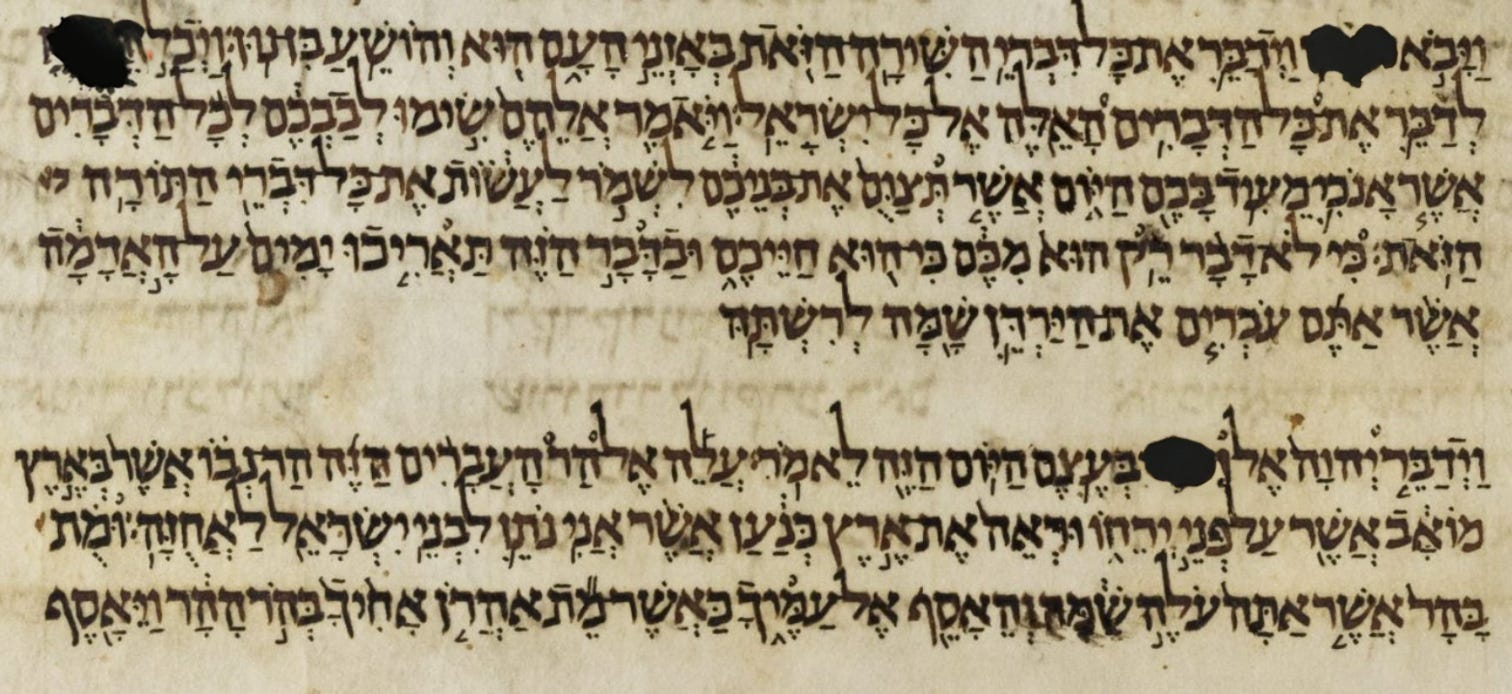 וַיָּבֹא וַיְדַבֵּר אֶת כָּל דִּבְרֵי הַשִּׁירָה הַזֹּאת בְּאָזְנֵי הָעָם הוּא וְהוֹשֵׁעַ בִּן נוּן וַיְכַל
לְדַבֵּר אֶת כָּל הַדְּבָרִים הָאֵלֶּה אֶל כָּל יִשְׂרָאֵל׃ וַיֹּאמֶר אֲלֵהֶם שִׂימוּ לְבַבְכֶם לְכָל הַדְּבָרִים
אֲשֶׁר אָנֹכִי מֵעִיד בָּכֶם הַיּוֹם אֲשֶׁר תְּצַוֻּם אֶת בְּנֵיכֶם לִשְׁמֹר לַעֲשׂוֹת אֶת כָּל דִּבְרֵי הַתּוֹרָה
הַזֹּאת׃ כִּי לֹא דָבָר רֵק הוּא מִכֶּם כִּי הוּא חַיֵּיכֶם וּבַדָּבָר הַזֶּה תַּאֲרִיכוּ יָמִים עַל הָאֲדָמָה
אֲשֶׁר אַתֶּם עֹבְרִים אֶת הַיַּרְדֵּן שָׁמָּה לְרִשְׁתָּהּ
וַיְדַבֵּר יְהוָה אֶל בְּעֶצֶם הַיּוֹם הַזֶּה לֵאמֹר׃ עֲלֵה אֶל הַר הָעֲבָרִים הַזֶּה הַר נְבוֹ אֲשֶׁר בְּאֶרֶץ
מוֹאָב אֲשֶׁר עַל פְּנֵי יְרֵחוֹ וּרְאֵה אֶת אֶרֶץ כְּנַעַן אֲשֶׁר אֲנִי נֹתֵן לִבְנֵי יִשְׂרָאֵל לַאֲחֻזָּה׃ וּמֻת
בָּהָר אֲשֶׁר אַתָּה עֹלֶה שָׁמָּה וְהֵאָסֵף אֶל עַמֶּיךָ כַּאֲשֶׁר מֵת אַהֲרֹן אָחִיךָ בְּהֹר הָהָר וַיֵּאָסֶף